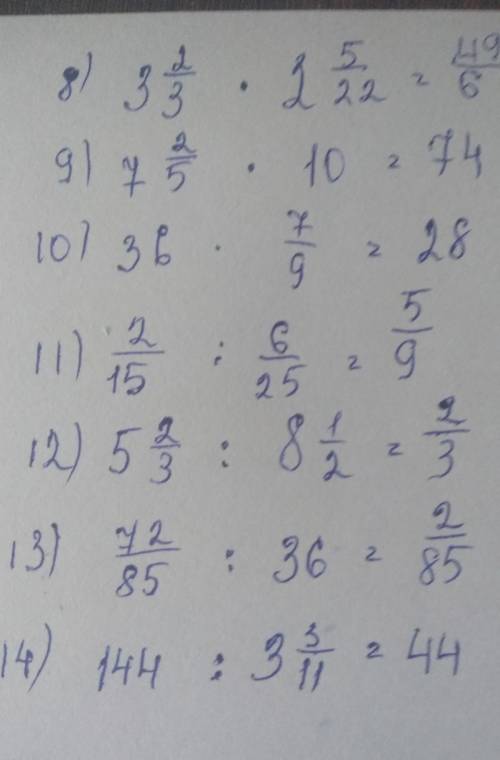 8) 3 2/3 · 2 5/22 = 49/6
9) 7 2/5 · 10 = 74
10) 36 · 7/9 = 28
11) 2/15 : 6/25 = 5/9
12) 5 2/3 : 8 1/2 = 2/3
13) 72/85 : 36 = 2/85
14) 144 : 3 3/11 = 44